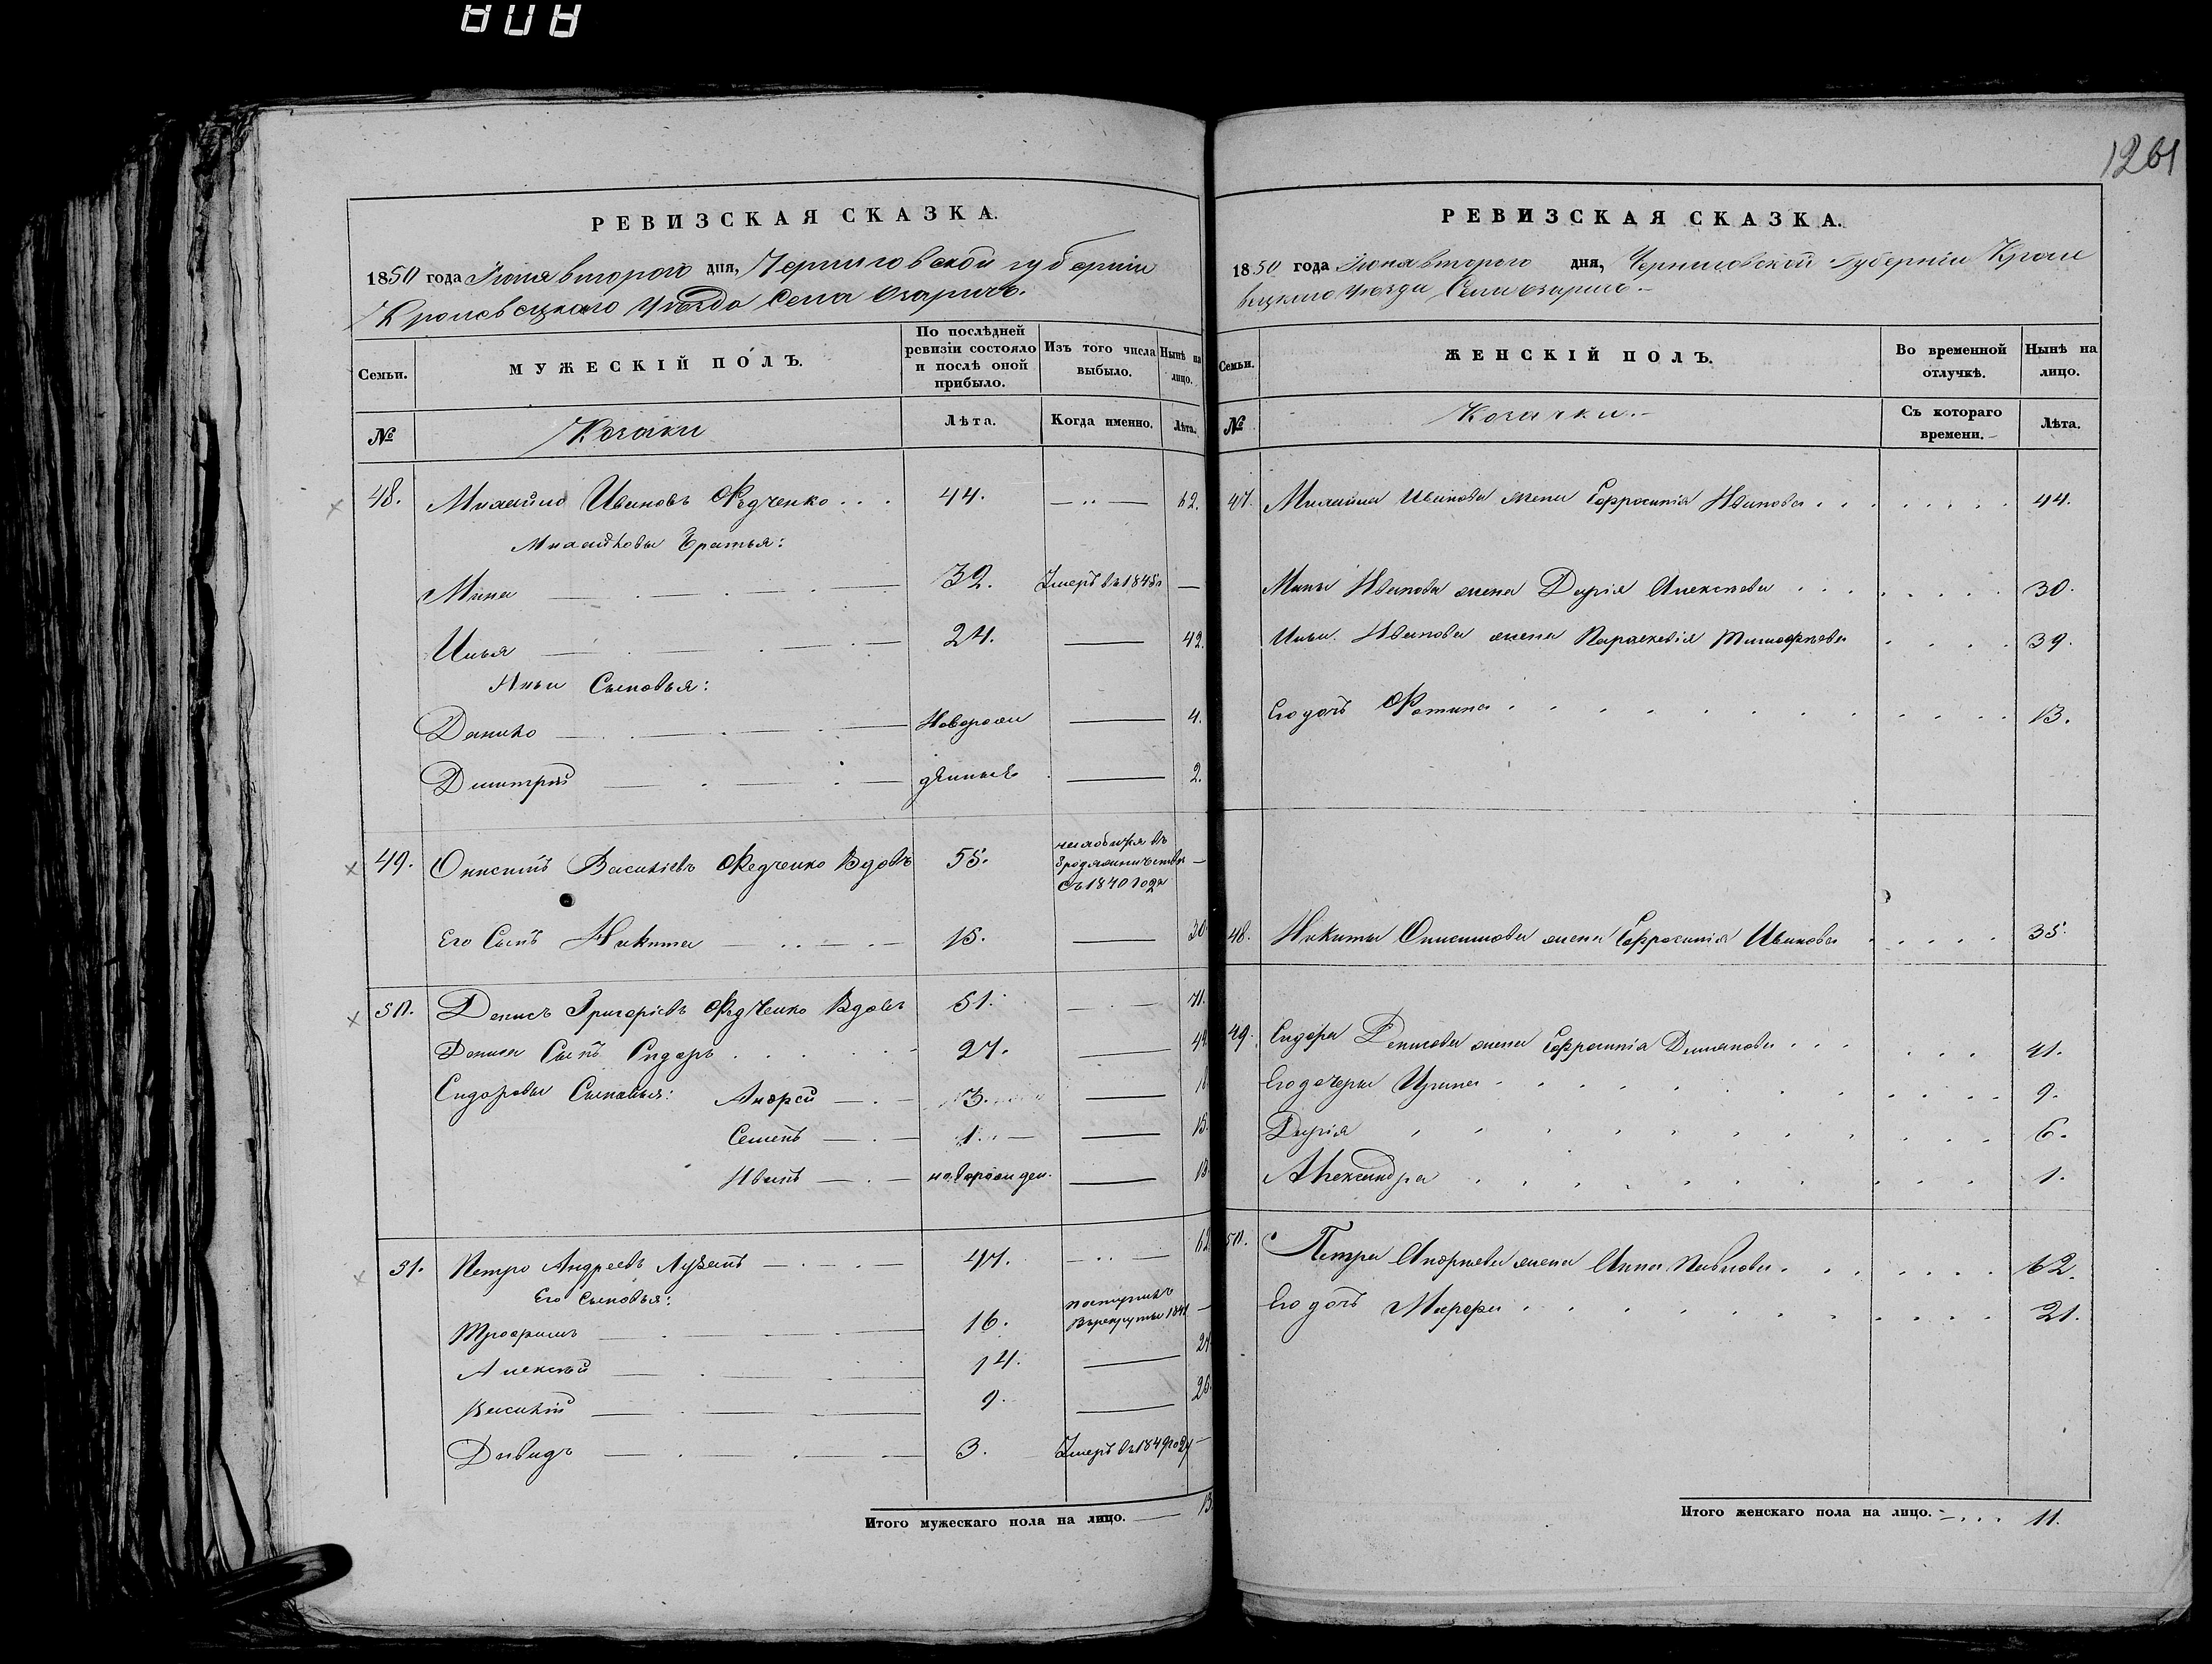 1261
РЕВИЗСКАЯ СКАЗКА.
1850 года Іюня второго дня, Черниговской губерніи
Кролевецкаго уѣзда Села Озаричъ.
Семьи.
МУЖЕСКІЙ ПОЛЪ.
По послѣдней ревизіи состояло и послѣ оной прибыло.
Изъ того числа выбыло.
Нынѣ на лицо.
№
Козаки
Лѣта.
Когда именно.
Лѣта.
48. Михайло Ивановъ Федченко 44. 62.
Михайловы братья:
Мина 32. Умеръ въ 1845
Илья 24. 42.
Ильи Сыновья:
Данило Новорож 4.
Дмитрій денные 2.
49. Онисимъ Василіевъ Федченко Вдовъ 55.
бродяжничествѣ
съ 1840 года
Его Сынъ Никита 15. 30
50. Денисъ Григоріевъ Федченко Вдовъ 51. 71.
Дениса Сынъ Сидоръ 27.
Сидоровы Сыновья: Андрей 3.
Семенъ 1. 15.
Иванъ новорожден. 13
51. Петро Андреевъ 47. 62
Его Сыновья:
Трофимъ 16. поступилъ
въ рекруты 1841
Алексѣй 14.
Василій 9.
Давидъ 3. Умеръ въ 1849 году
Итого мужескаго пола на лицо. 13
РЕВИЗСКАЯ СКАЗКА.
1850 года Іюня второго дня, Черниговской Губерніи Кроле
вецкаго уѣзда Села Озаричъ
Семьи.
ЖЕНСКІЙ ПОЛЪ.
Во временной отлучкѣ.
Нынѣ на лицо.
№
Козачки.
Съ котораго времени.
Лѣта.
47. Михайла Иванова жена Ефросинія Иванова 44.
Мины Иванова жена Дарія Алексѣева 30.
Ильи Иванова жена Параскевія Тимофѣева 39.
Его дочь Фотина 13.
48. Никиты Онисимова жена Ефросинія Иванова 35
49. Сидора Денисова жена Ефросинія Демянова 41.
Его дочери Ирина 9.
Дарія 6.
Александра 1.
50. Петра Андреева жена Анна Павлова 62.
Его дочь Марфа 21.
Итого женскаго пола на лицо. 11.